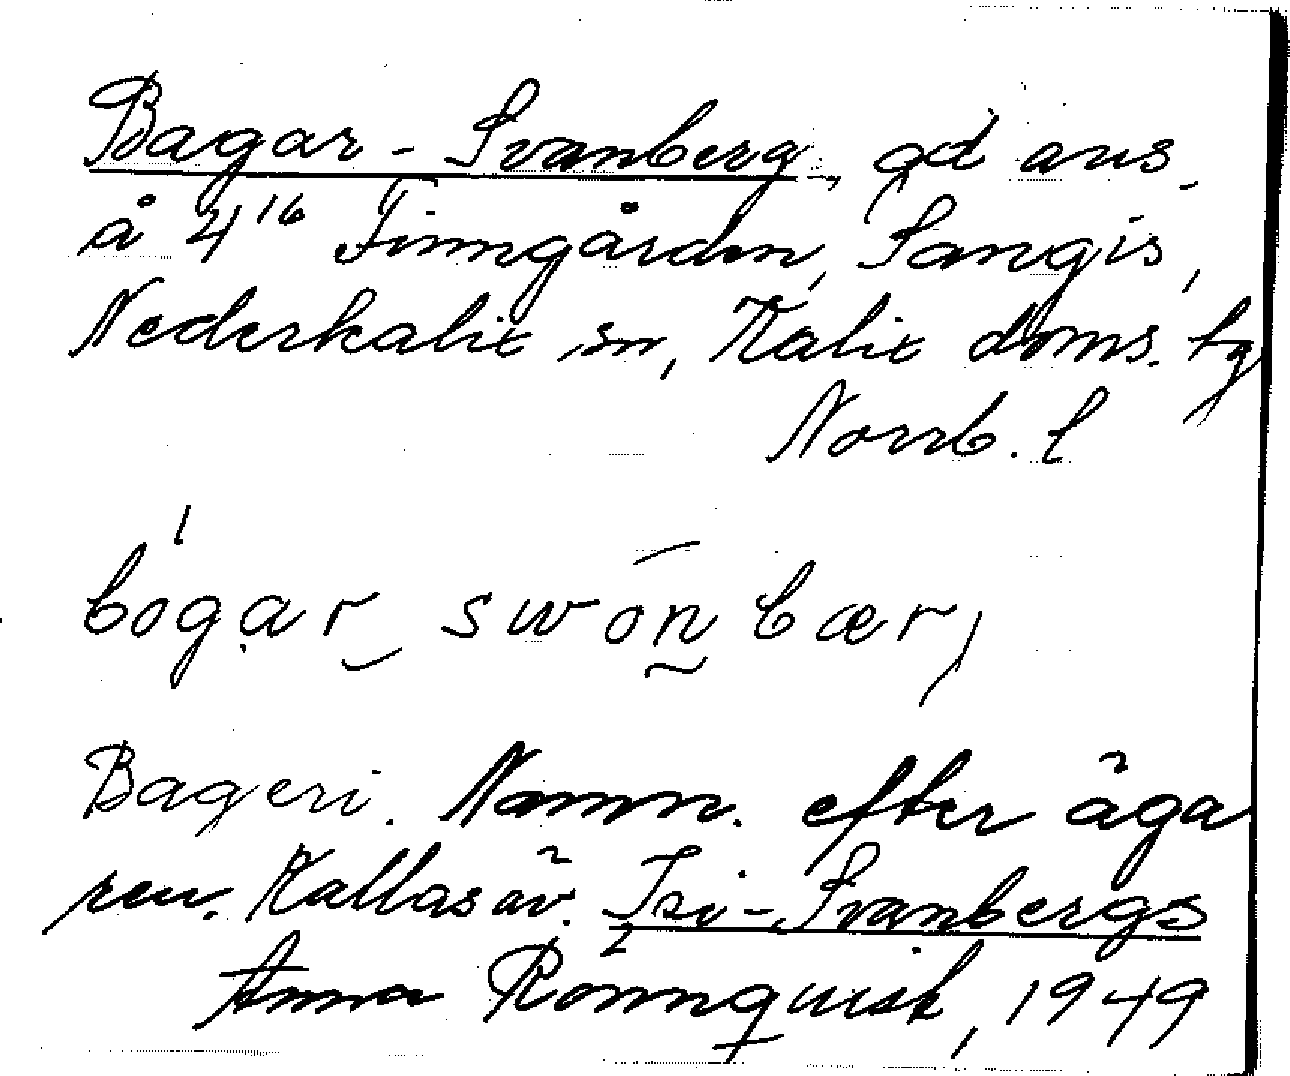 Bagar-Svanberg, gd ans.
å 4¹⁶ Finngården, Sangis,
Nederkalix sn, Kalix doms. tg
Norrb. l
bógar swōn bær,
Bageri. Namn. efter äga
ren. Kallas äv. Isi-Svanbergs
Anna Rönnquist, 1949